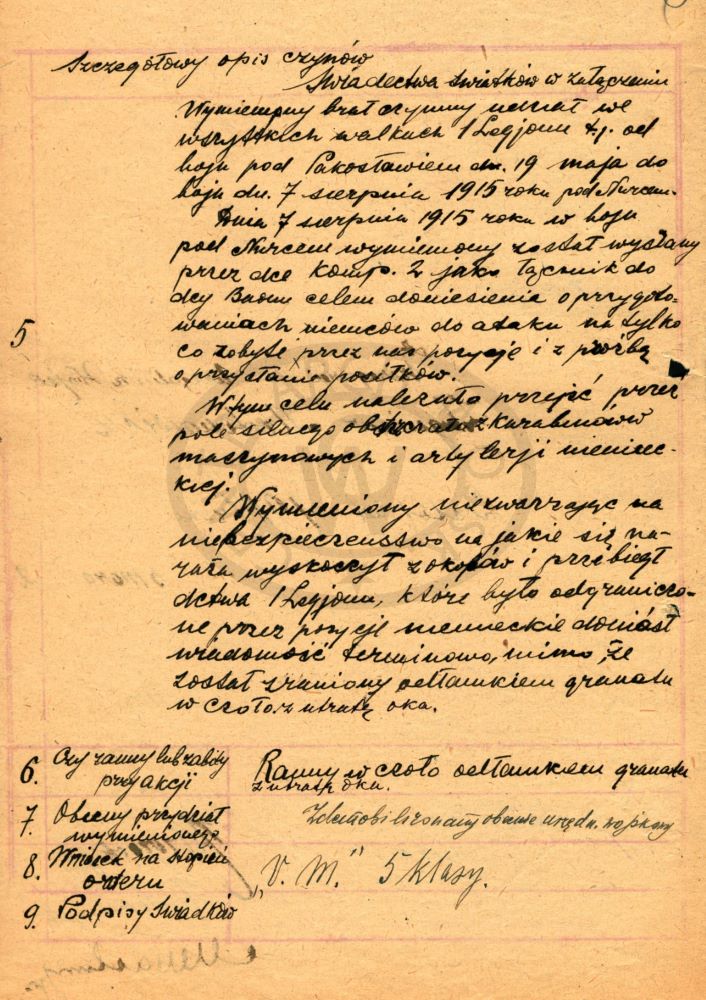 Szczegółowy opis czynów
Świadectwa świadków w załączeniu
Wymieniony brał czynny udział we
wszystkich walkach 1 Legjonu t.j. od
boju pod Pakosławiem dn. 19 maja do
boju dn. 7 sierpnia 1915 roku pod Nurcem.
Dnia 7 sierpnia 1915 roku w boju
pod Nurcem wymieniony został wysłany
przez dcę komp. 2 jako łącznik do
dcy Baonu celem doniesienia o przygoto-
waniach niemców do ataku na tylko
5 co zdobyte przez nas pozycje i z prośbą
o przysłanie posiłków.
W tym celu należało przejść przez
pole silnego obstrzału z karabinów
maszynowych i artylerji niemiec-
kiej.
Wymieniony niezważając na
niebezpieczeństwo na jakie się na-
raża wyskoczył z okopów i przebiegł
dctwa 1 Legjonu, które było odgraniczo-
ne przez pozycje niemieckie doniósł
wiadomość terminowo, mimo, że
został zraniony odłamkiem granatu
w czoło z utratą oka.
6. Czy ranny lub zabity Ranny w czoło odłamkiem granatu
przy akcji z utratą oka.
7. Obecny przydział Zdemobilizowany obecnie urzędn. wojskowy
wymienionego
8. Wniosek na stopień „V. M." 5 klasy.
orderu
9. Podpisy świadków